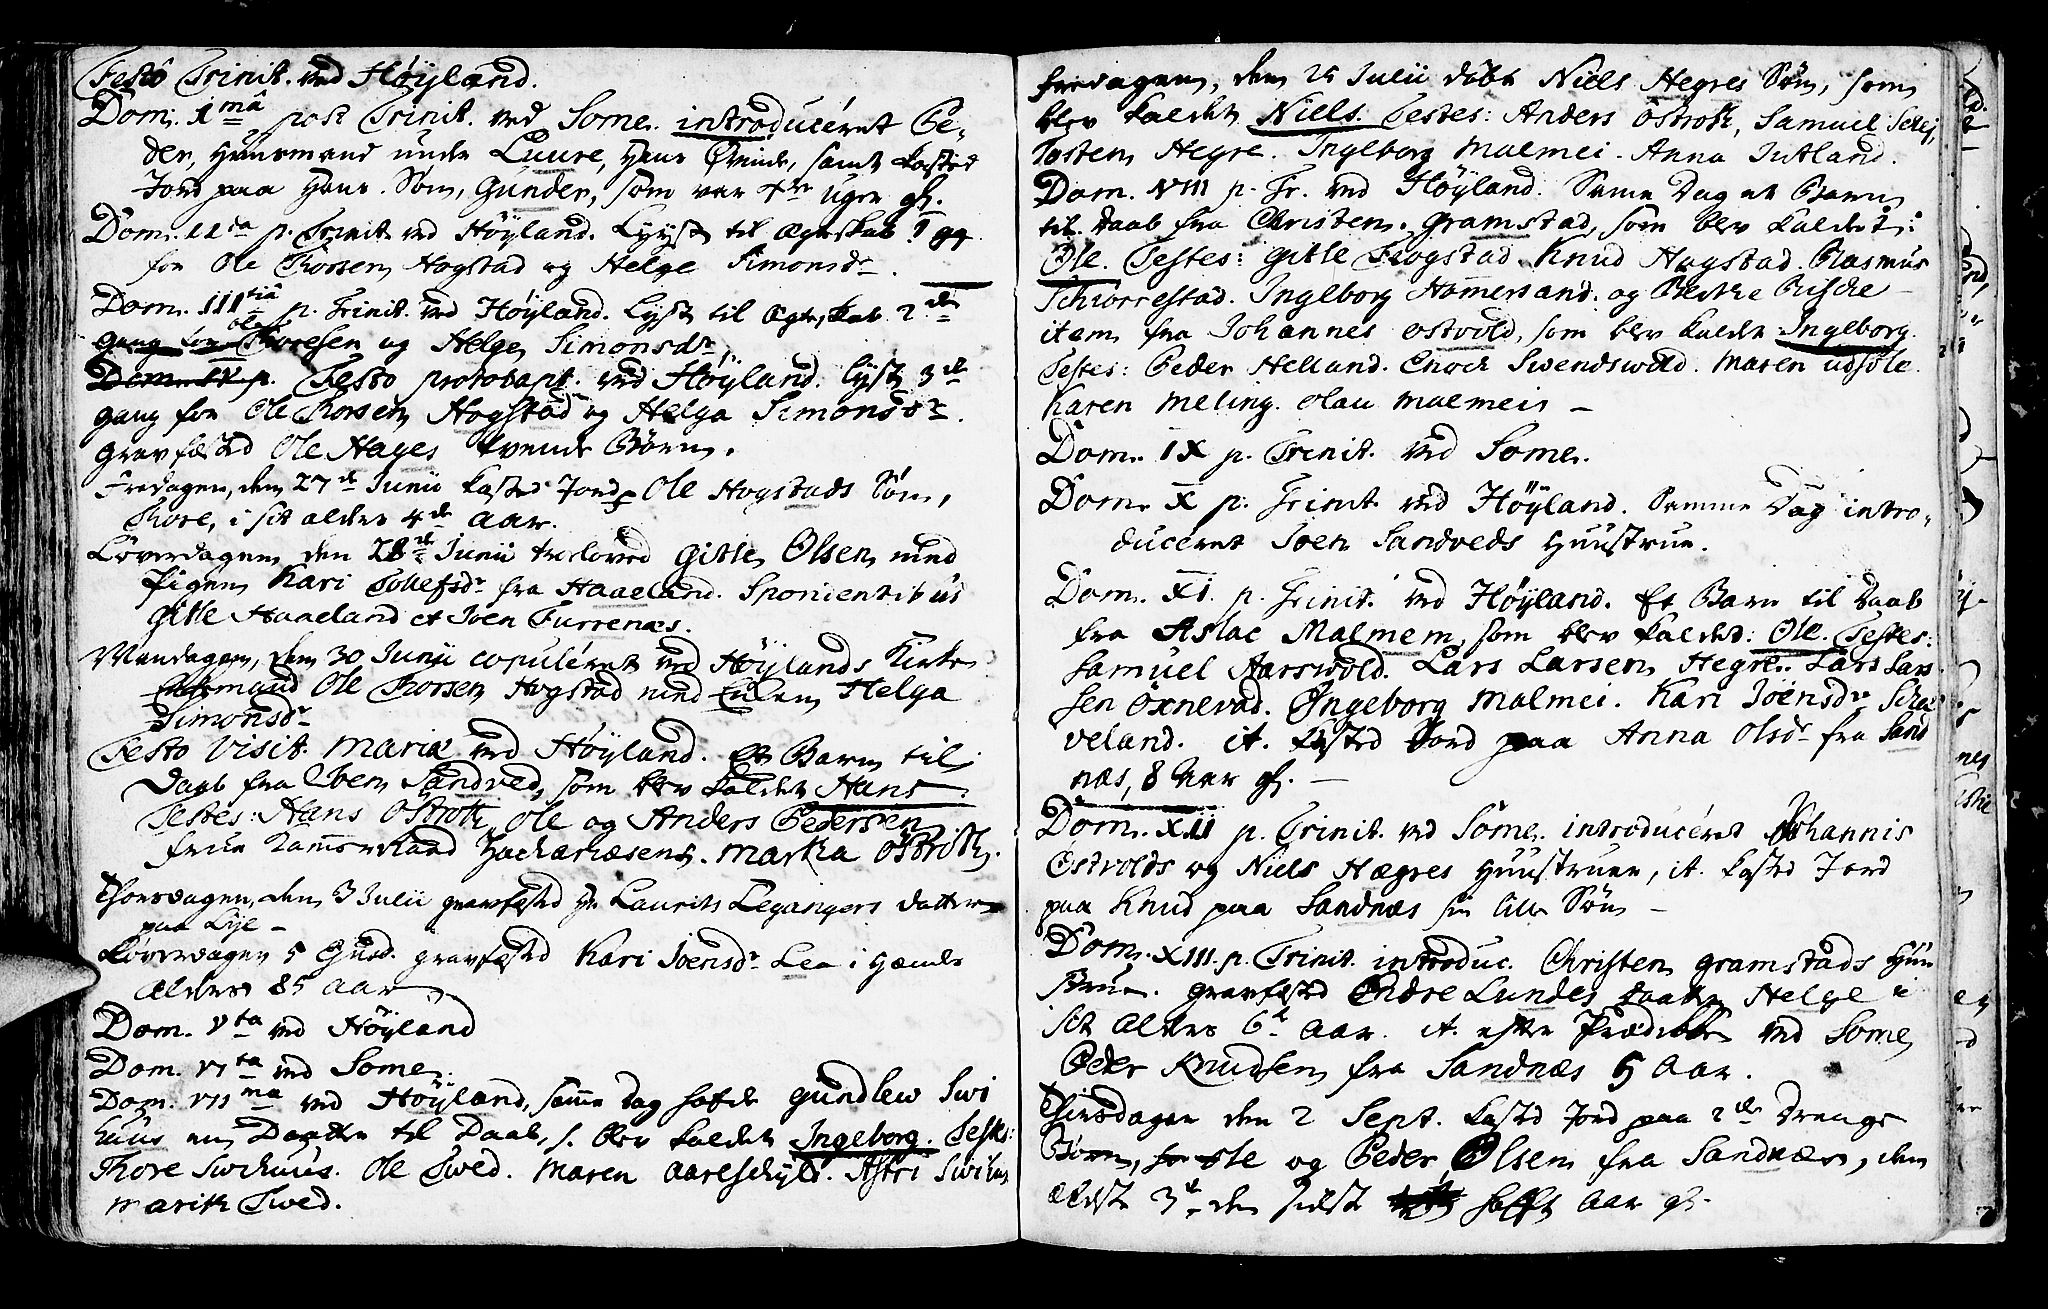 Festo Trinit. ved Höyland.
Dom. 1mâ post Trinit. ved Some. introduceret Pe-
der, Huusmand under Luure, Hans Qvinde, samt kasted
Jord paa hans Søn, Gunder, som var 4re uger gl.
Dom. IIda p. Trinit. ved Höyland. Lyyst til Ægteskab 1 gg
for Ole Thorsen Hogstad og Helge Simonsdr.
Dom. IIItiâ p. Trinit. ved Höyland. Lyst til Ægteskab 2den
gang for Ole Thoresen og Helge Simonsdr.
Dom. IV p. Festo protobapt. ved Höyland. lyst 3die
gang for Ole Thorsen Hogstad og Helga Simonsdr.
gravfæsted Ole Hayes tvende Børn.
Fredagen, den 27de Junii kasted Jord p Ole Hogstads Søn,
Thore, i sit alders 4de aar.
Løverdagen den 28de Junii troloved Gitle Olsen med
Pigen Kari Tollefsdr fra Haaeland. Spondentibus
Gitle Haaeland et Joen Furrenæs.
Mandagen, den 30 Junii copuleret ved Höylands Kirke
Enkemand Ole Thorsen Hogstad med Enken Helga
Simonsdr
Festo Visit. Mariæ ved Höyland. Et Barn til
Daab fra Joen Sandved, som blev kaldet Hans.
Testes: Hans Ostrott, Ole og Anders Pedersen
Frue Zachariæsens. Martha Ostrott.
Thorsdagen, den 3 Julii gravfæsted Hr Laurits Leganger datter
paa Lye –
Løverdagen 5 gravfæsted Kari Joensdr Lea i hendes
Alders 85 aar
Dom. Vta ved Höyland
Dom. VIta ved Some.
Dom. VIIma ved Höyland, samme dag hafde Gundlew Swi
huus en Daatter til Daab, s. blev kaldet Ingeborg. Testes:
Thore Swihuus. Ole Twed. Maren Aareskyld. Astri Swihus
Marith Twed.
Fredagen, den 25 Julii døbt Niels Hegres Søn, som
blev kaldet Niels. Testes: Anders Ostrott, Samuel
Tosten Hegre. Ingeborg Malmei. Anna Jutland.
Dom. VIII p. Tr. ved Höyland. Samme Dag et Barn
til Daab fra Christen Gramstad, som blev kaldet:
Ole. Testes: Gitle Frogstad. Knud Hogstad. Rasmus
Schiørrestad. Ingeborg Hamersand. og Berthe Rische
item fra Johannes Ostvold, som blev kaldet Ingeborg.
Testes: Peder Helland. Enoch Swendswold. Maren udsole.
Karen Meling. Olau Malmeis –
Dom. IX p. Trinit. ved Some.
Dom. X p. Trinit. ved Höyland. Samme Dag intro-
duceret Joen Sandveds Huustrue.
Dom. XI. p. Trinit. ved Höyland. Et Barn til Daab
fra Aslac Malmem, som blev kaldet: Ole. Testes:
Samuel Aarswold. Lars Larsen Hegre. Lars Lars
sen Oxnevad. Ingeborg Malmei. Kari Joensdr
veland. it. kasted Jord paa Anna Olsdr fra Sand
næs, 8 Aar gl. –
Dom. XII p. Trinit. ved Some. introduceret Johannis
Ostvolds og Niels Hægres Huustruer, it. kasted Jord
paa Knud paa Sandnæs sin lille Søn –
Dom. XIII. p. Trinit. introduc. Christen Gramstads Huu
strue. gravfæsted Endre Lundes Daatter Helge i
sit alders 6t Aar. it. efter Prædiken ved Some
Peder Knudsen fra Sandnæs 5 Aar.
Thirsdagen den 2 Sept. kasted Jord paa 2de Drenge
Børn, Ole og Peder Olsen fra Sandnæs, den
ældste 3t, den sidste halft Aar gl.